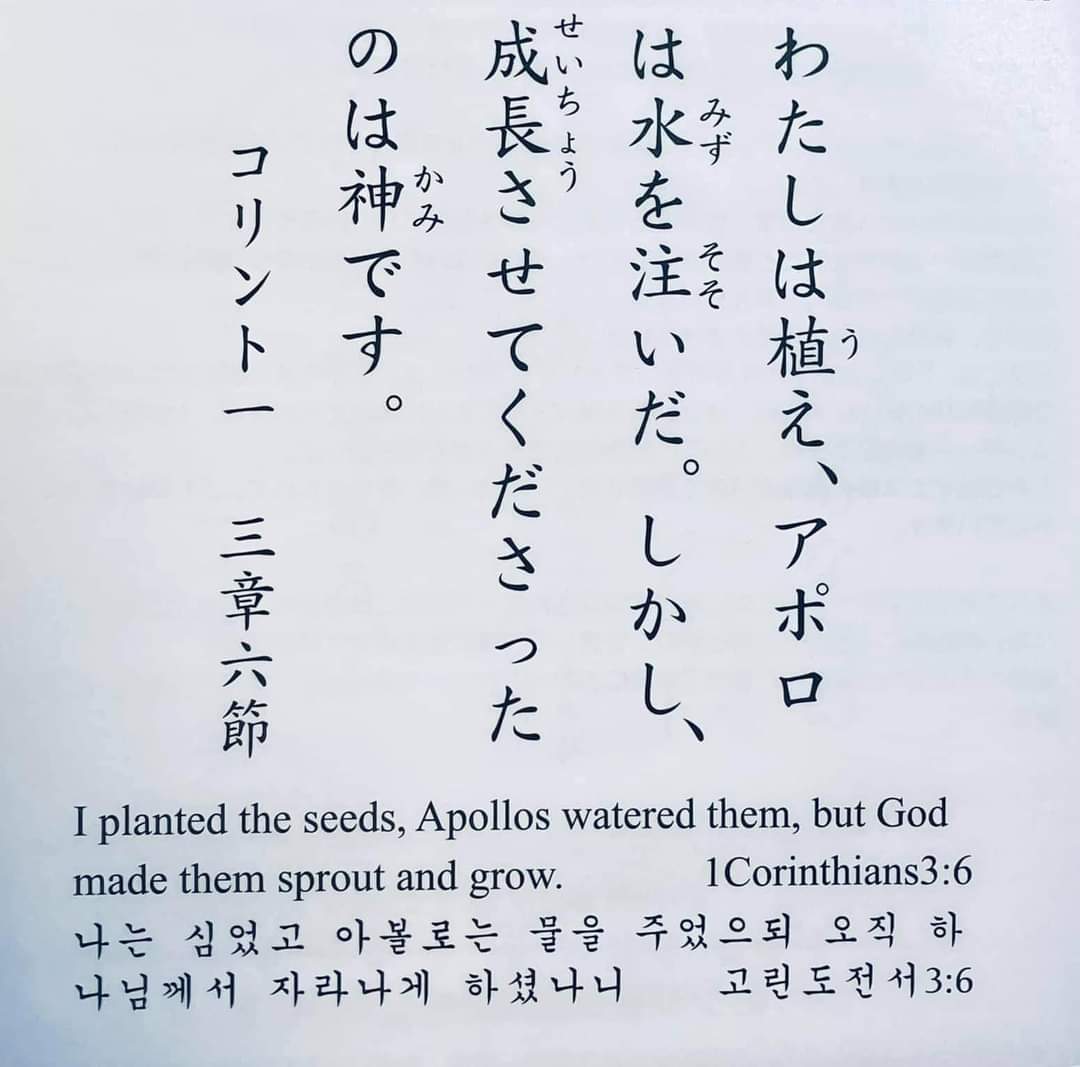 わたしは植え、アポロ
は水を注いだ。しかし、
成長させてくださった
のは神です。
コリント一 三章六節
I planted the seeds, Apollos watered them, but God
made them sprout and grow. 1Corinthians3:6
나는 심었고 아볼로는 물을 주었으되 오직 하
나님께서 자라나게 하셨나니 고린도전서3:6